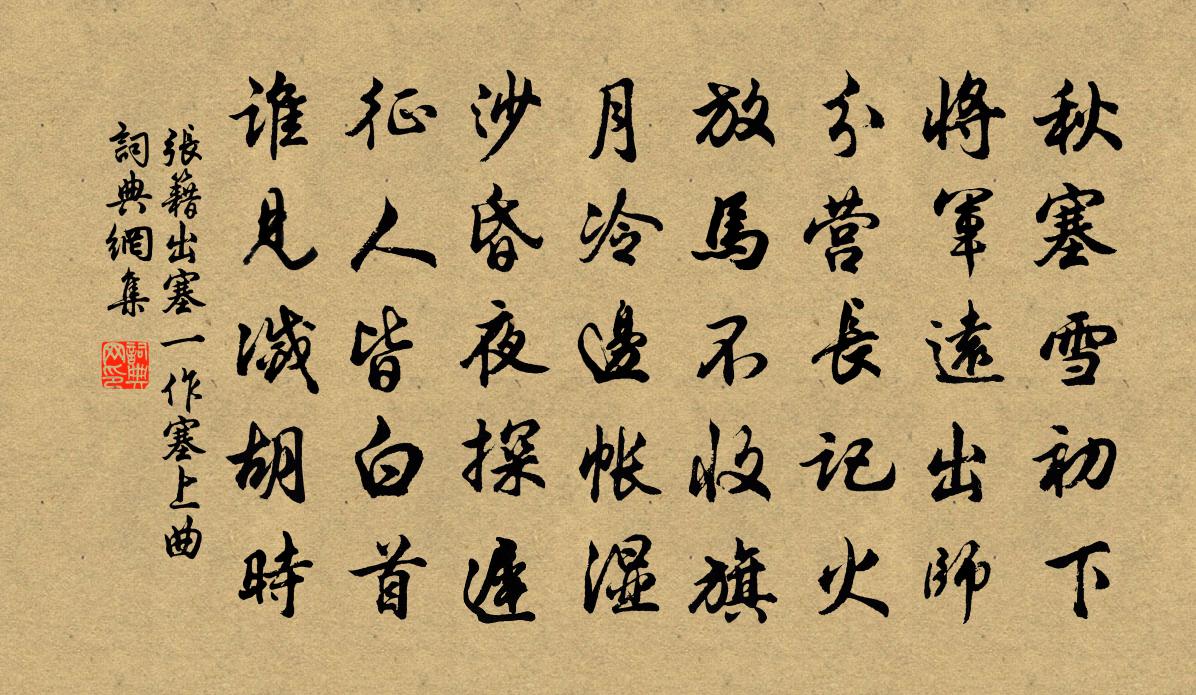 秋塞雪初下
將軍遠出師
分营長记火
放馬不收旗
月冷邊帐湿
沙昏夜探遲
征人皆白首
誰見滅胡時
張籍出塞一作塞上曲
詞典網集
詞典网印